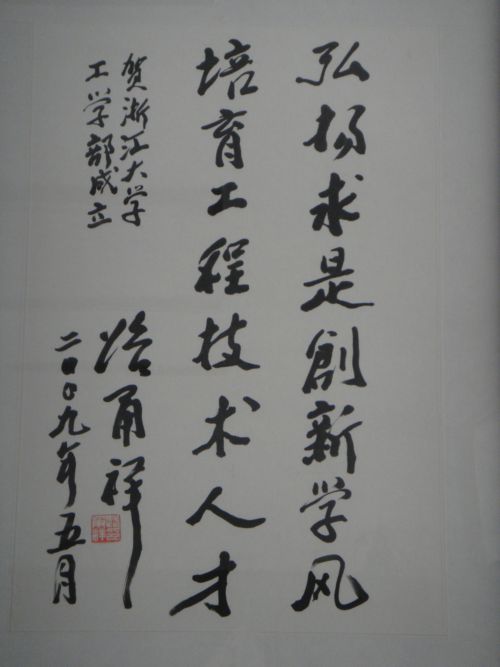 弘扬求是創新学风
培育工程技术人才
贺浙江大学
工学部成立
路甬祥
二〇〇九年五月